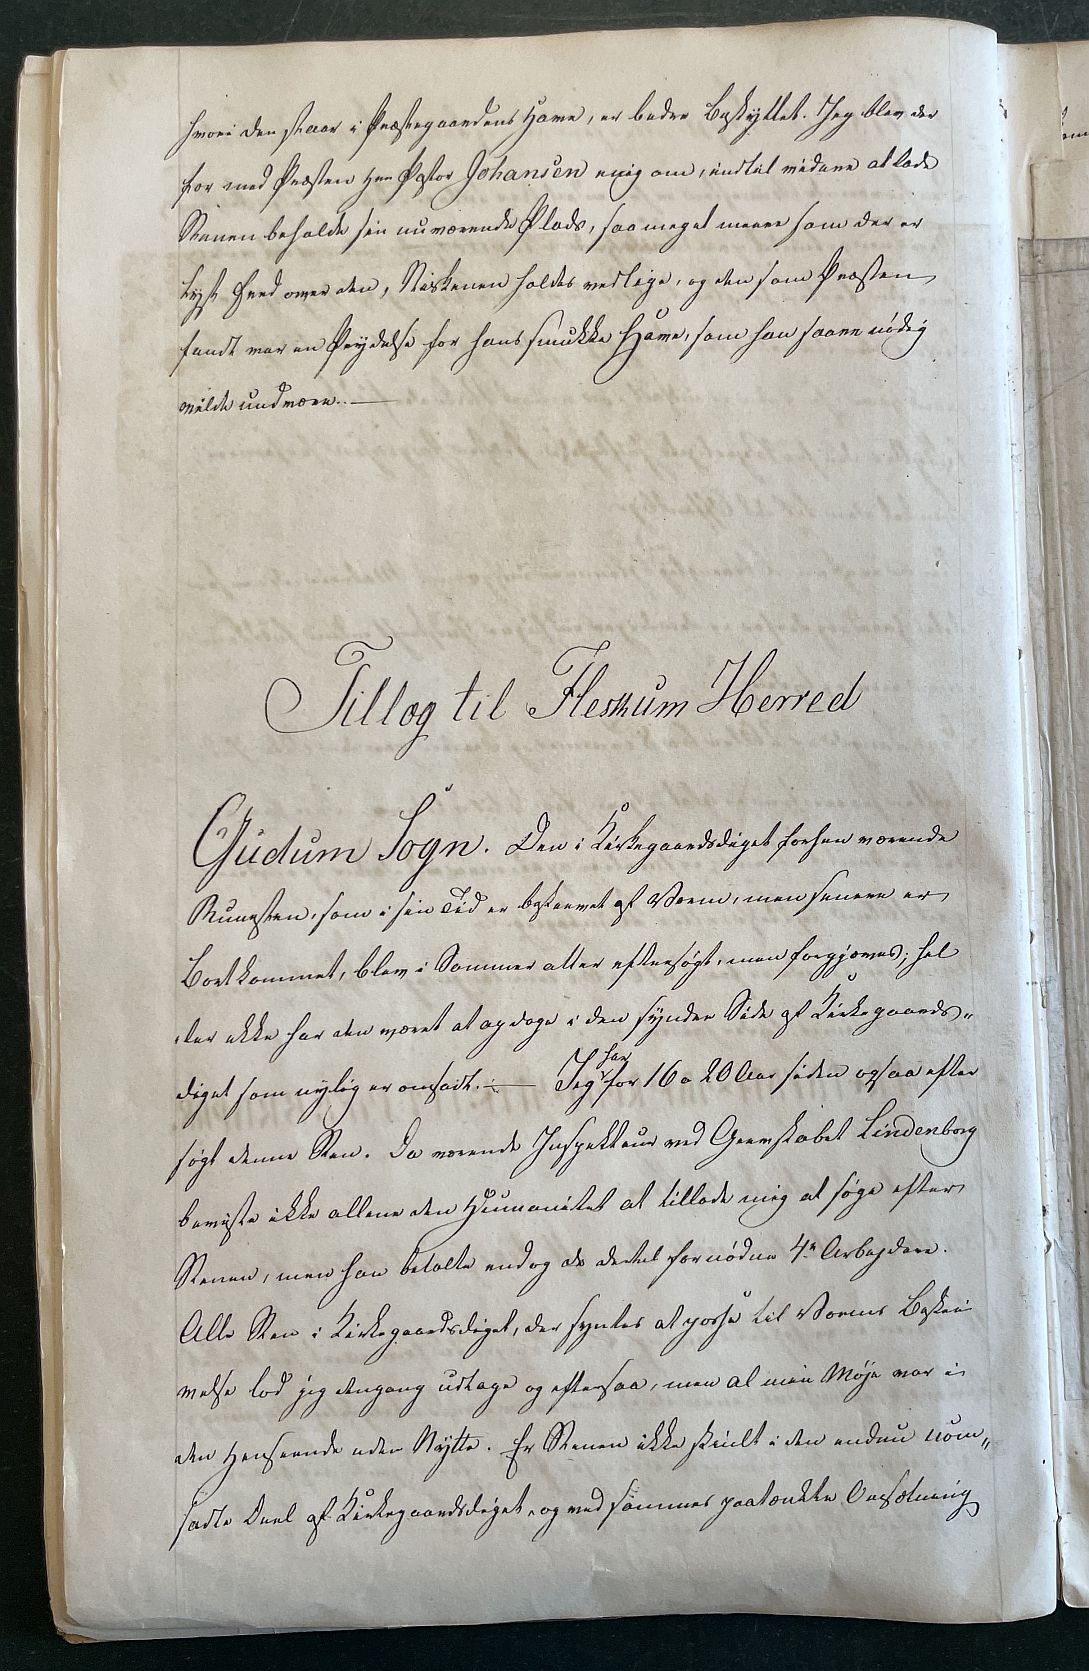 hvori den staar i Præstegaardens Have, er bedre beskyttet. Jeg blev der
for med Præsten Hrr Pastor Johansen enig om, indtil videre at lade
Stenen beholde sin nuværende Plads, saa meget meere som der er
lyst Fred over den, Risterne holdes vedlige, og den som Præsten
fandt var en Prydelse for hans smukke Have, som han saare nødig
vilde undvære. —
Tillæg til Fleskum Herred
Gudum Sogn. Den i Kirkegaardsdiget forhen værende
Runesten, som i sin Tid er beskrevet af Worm, men senere er
bortkommet, blev i Sommer atter eftersøgt, men forgjæves; hel
ler ikke har den været at opdage i den syndre Side af Kirkegaards„
diget som nylig er omsadt. — Jeg har for 16 a 20 Aar siden ogsaa efter
søgt denne Sten. Da værende Inspekteur ved Grevskabet Lindenborg
beviste ikke allene den Humanitet at tillade mig at søge efter
Stenen, men han betalte endog de dertil fornødne 4re Arbejdere.
Alle Sten i Kirkegaardsdiget, der syntes at passe til Worms Beskri
velse lod jeg dengang udtage og eftersaa, men al min Møje var i
den Henseende uden Nytte. Er Stenen ikke skiult i den endnu uom„
sadte Deel af Kirkegaardsdiget, og ved sammes paatænkte Omsætning